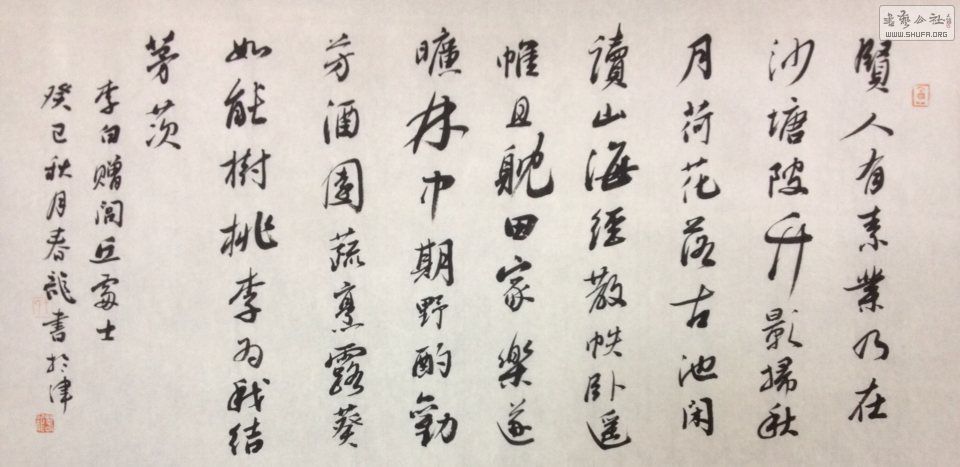 賢人有素業乃在
沙塘陂竹影掃秋
月荷花落古池闲
讀山海經散帙卧遥
帷且躭田家樂遂
曠林中期野酌勸
芳酒園蔬烹露葵
如能樹桃李为我結
茅茨
李白赠闾丘處士
癸巳秋月春龍書於津
書藝公社
WWW.SHUFA.ORG